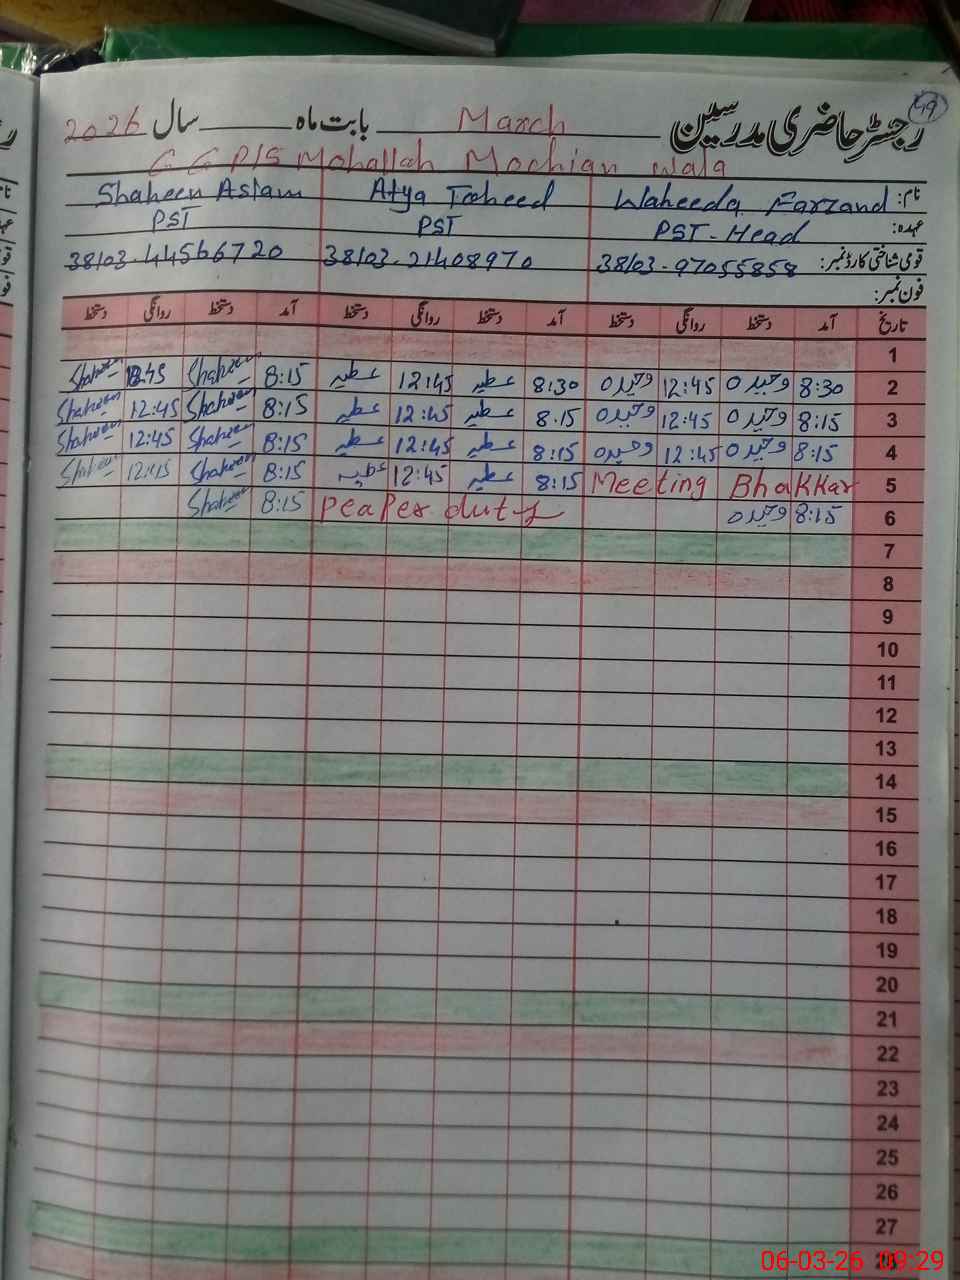 49
رجسٹر حاضری مدرسین بابت ماہ March سال 2026
G G P/S Mohallah Mochian wala
نام: Waheeda Farzand Atya Toheed Shaheen Aslam
عہدہ: PST-Head PST PST
قومی شناختی کارڈ نمبر: 38103-97055858 38103-21408970 38103-44566720
فون نمبر:
تاریخ آمد دستخط روانگی دستخط آمد دستخط روانگی دستخط آمد دستخط روانگی دستخط
1
2 8:30 وحیدہ 12:45 وحیدہ 8:30 عطیہ 12:45 عطیہ 8:15 Shaheen 12:45 Shaheen
3 8:15 وحیدہ 12:45 وحیدہ 8.15 عطیہ 12:45 عطیہ 8:15 Shaheen 12:45 Shaheen
4 8:15 وحیدہ 12:45 وحیدہ 8:15 عطیہ 12:45 عطیہ 8:15 Shaheen 12:45 Shaheen
5 Meeting Bhakkar 8:15 عطیہ 12:45 عطیہ 8:15 Shaheen Shaheen
6 8:15 وحیدہ Peaper duty 8:15 Shaheen
7
8
9
10
11
12
13
14
15
16
17
18
19
20
21
22
23
24
25
26
27
28
06-03-26 09:29